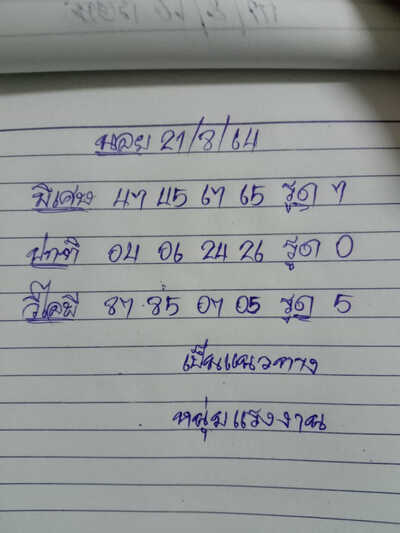 นอย 21/8/64
พิเศษ 47 45 67 65 รูด 7
ปกติ 04 06 24 26 รูด 0
วีไอพี 87 85 07 05 รูด 5
เป็นแนวทาง
หนุ่มแรงงาน